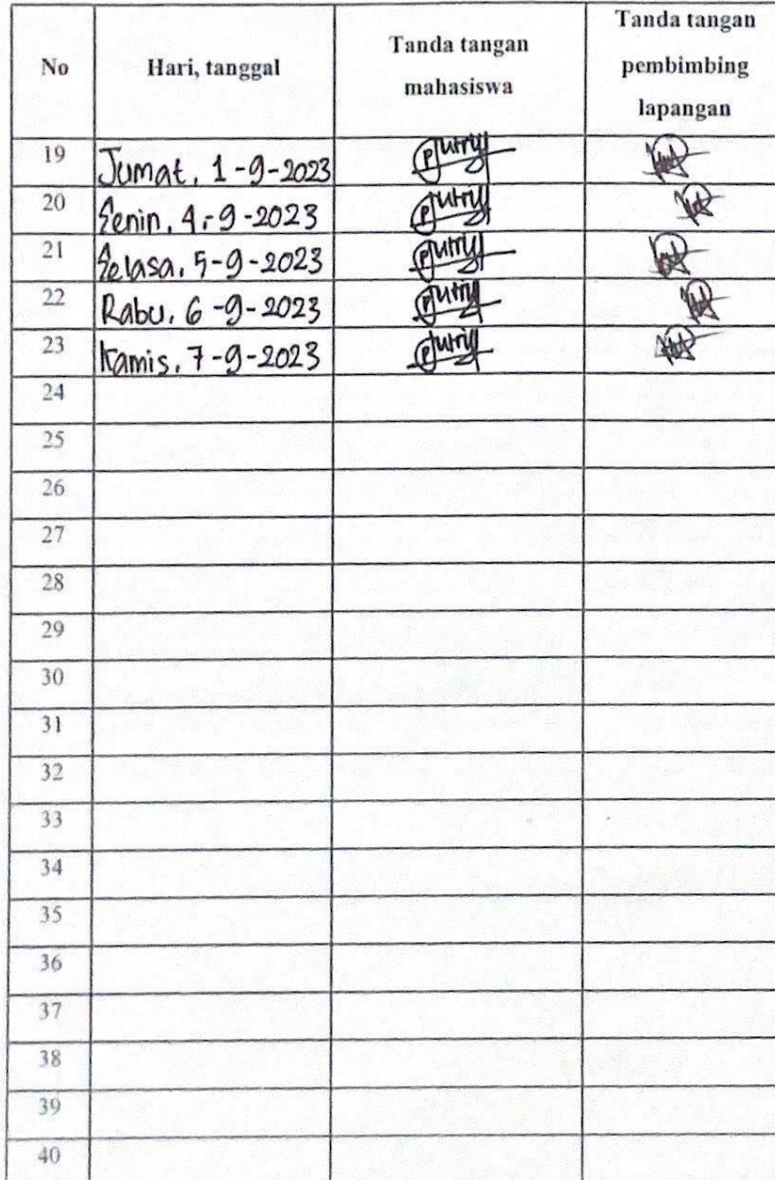 No Hari, tanggal Tanda tangan mahasiswa Tanda tangan pembimbing lapangan
19 Jumat, 1-9-2023
20 Senin, 4-9-2023
21 Selasa, 5-9-2023
22 Rabu, 6-9-2023
23 Kamis, 7-9-2023
24
25
26
27
28
29
30
31
32
33
34
35
36
37
38
39
40